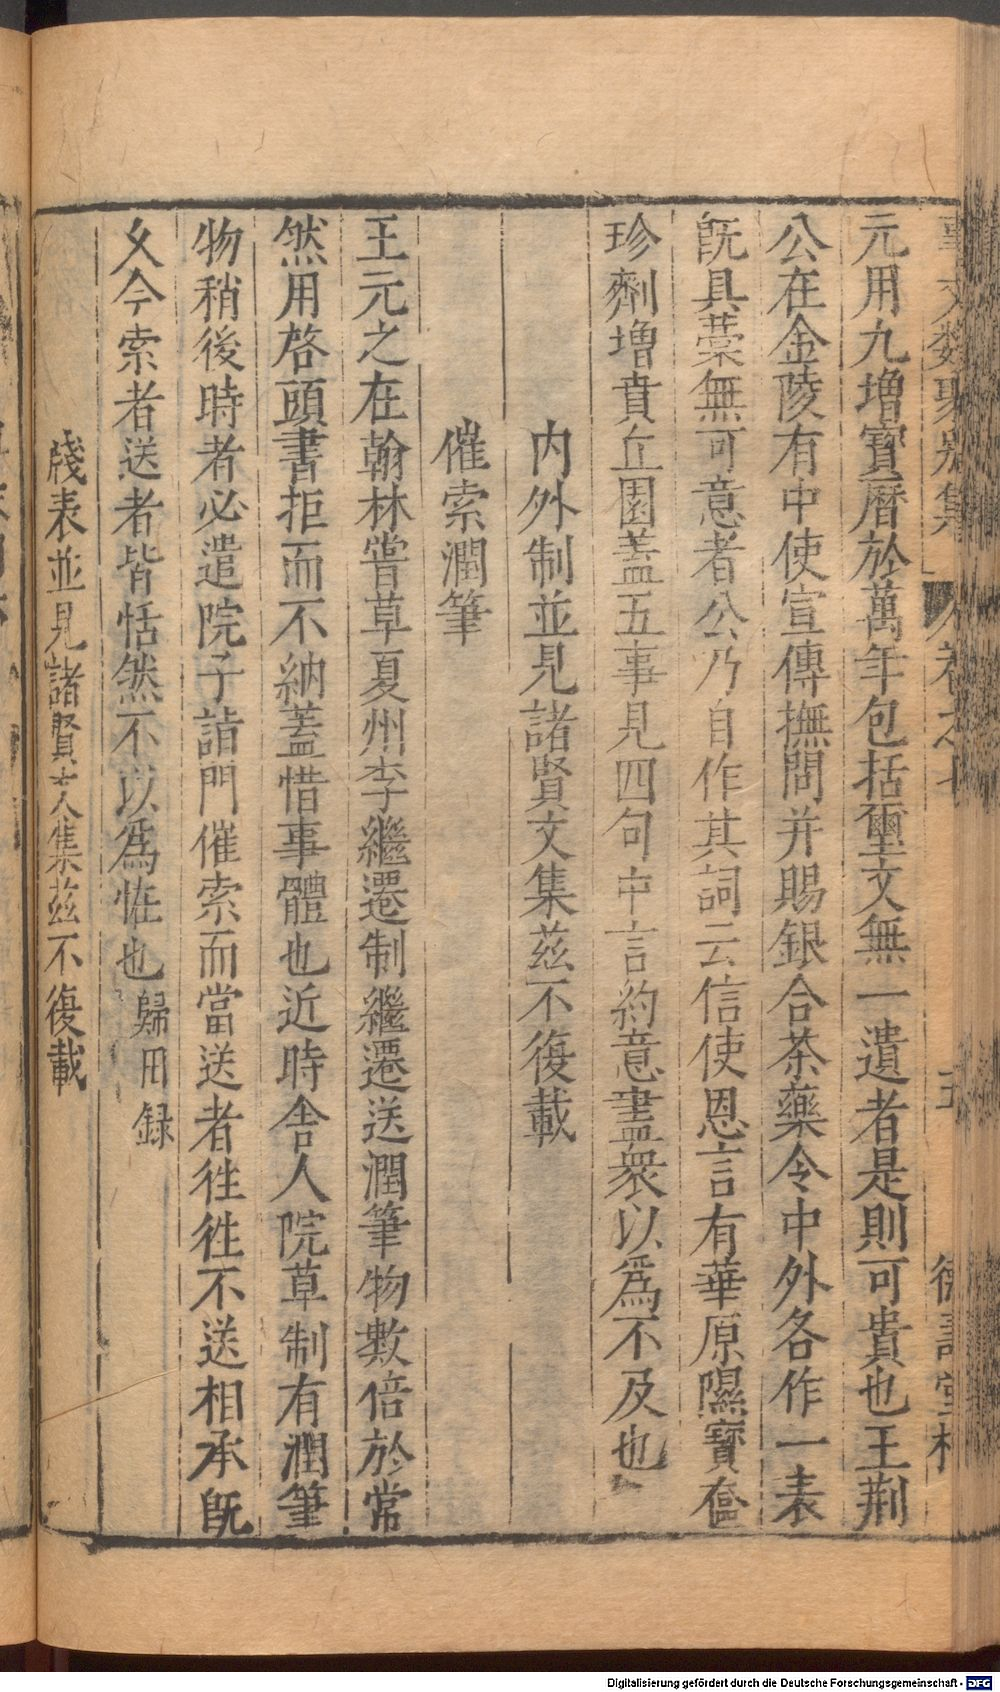 事文類聚別集 卷之七 五 德壽堂梓
元用九增寶曆於萬年包括璽文無一遺者是則可貴也王荆
公在金陵有中使宣傳撫問并賜銀合茶藥令中外各作一表
旣具藁無可意者公乃自作其詞云信使恩言有華原隰寶奩
珍劑增賁丘園蓋五事見四句中言約意盡衆以爲不及也
内外制並見諸賢文集茲不復載
催索潤筆
王元之在翰林嘗草夏州李繼遷制繼遷送潤筆物數倍於常
然用啓頭書拒而不納蓋惜事體也近時舎人院草制有潤筆
物稍後時者必遣院子詣門催索而當送者徃徃不送相承旣
乆今索者送者皆恬然不以爲恠也 歸田録
牋表並見諸賢文集茲不復載
Digitalisierung gefördert durch die Deutsche Forschungsgemeinschaft - DFG